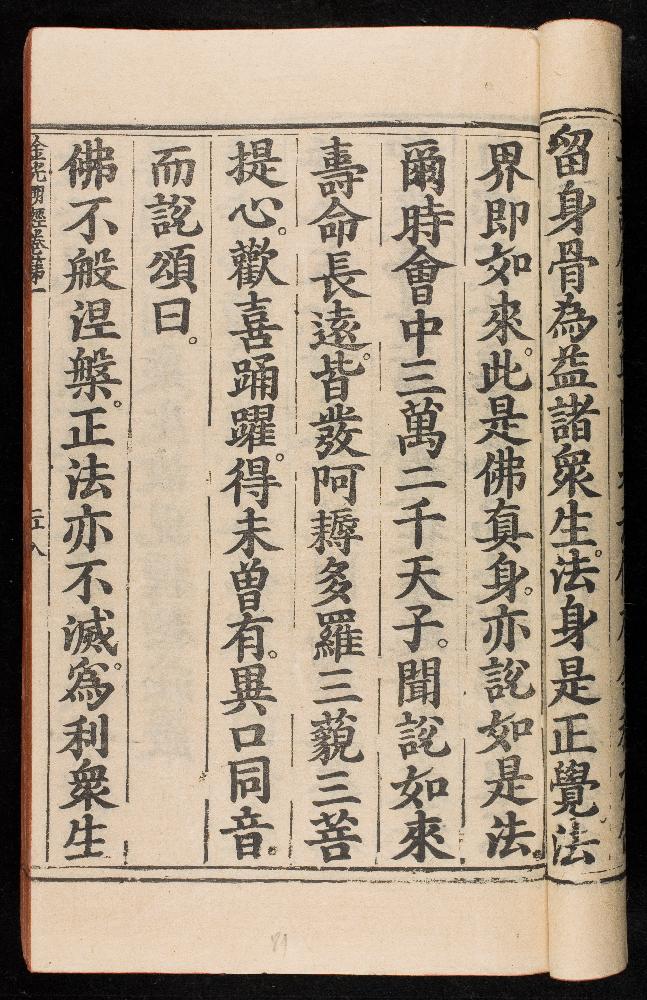 留身骨為益諸衆生。法身是正覺法
界即如來。此是佛真身。亦說如是法。
爾時會中三萬二千天子。聞說如來
壽命長遠。皆發阿耨多羅三藐三菩
提心。歡喜踊躍。得未曾有。異口同音。
而說頌曰。
佛不般涅槃。正法亦不滅。為利衆生
金光明經卷第一